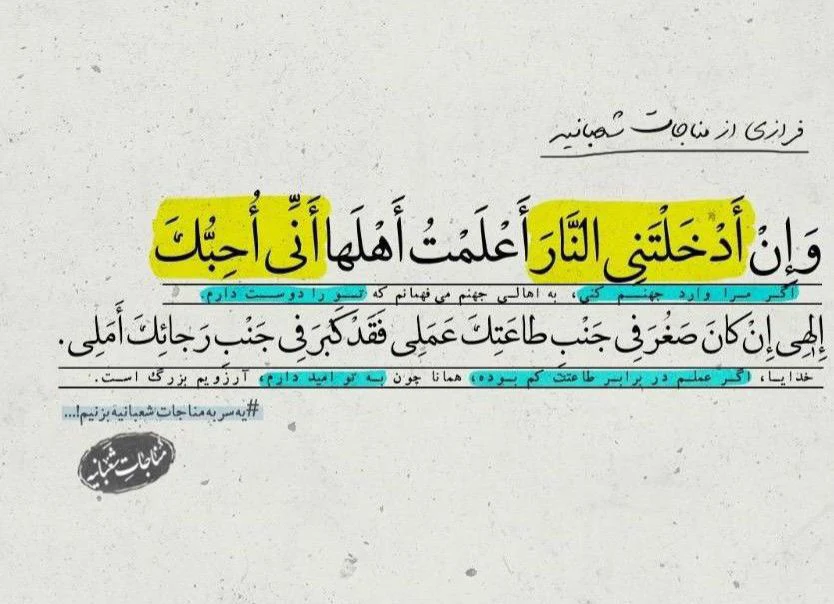 فرازی از مناجات شعبانیه
وَإِنْ أَدْخَلْتَنِی النَّارَ أَعْلَمْتُ أَهْلَها أَنِّی أُحِبُّكَ
اگر مرا وارد جهنم کنی، به اهالی جهنم می‌فهمانم که تو را دوست دارم.
إِلهِی إِنْ کانَ صَغُرَ فِی جَنْبِ طاعَتِكَ عَمَلِی فَقَدْ کَبُرَ فِی جَنْبِ رَجائِكَ أَمَلِی.
خدایا، اگر عملم در برابر طاعتت کم بوده، همانا چون به تو امید دارم، آرزویم بزرگ است.
#یه‌سر‌به‌مناجات‌شعبانیه‌بزنیم!...
مناجات شعبانیه